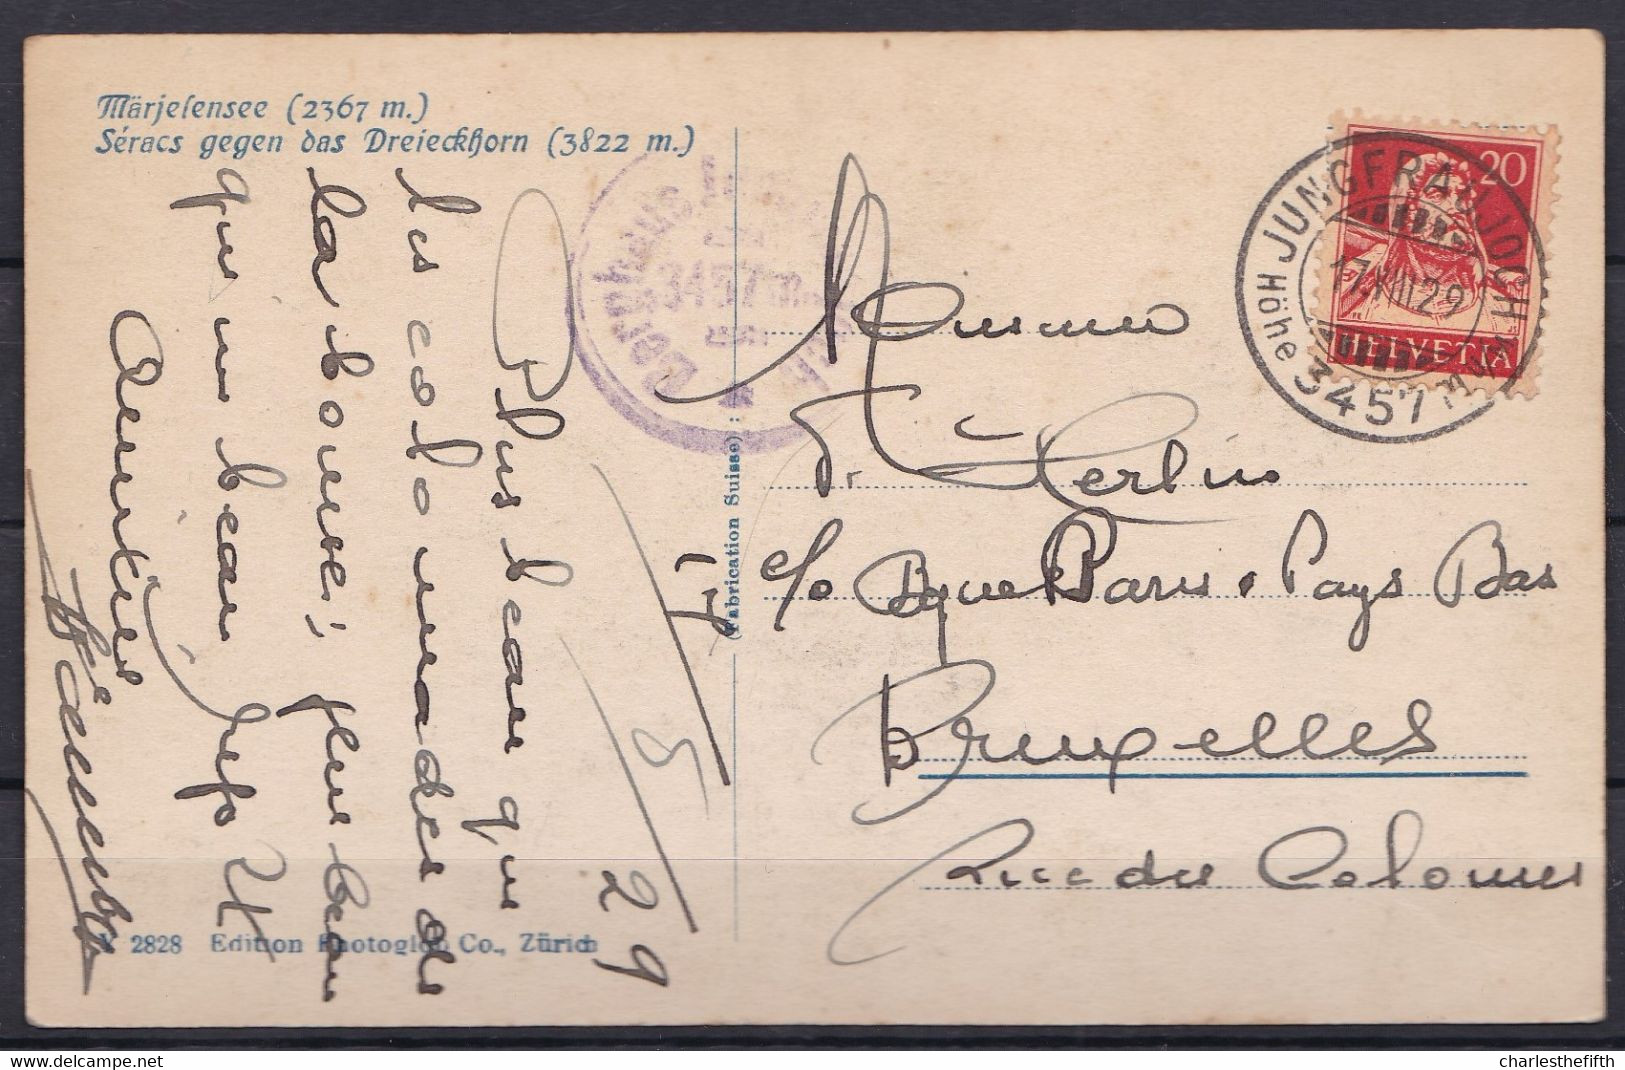 Märjelensee (2367 m.)
Séracs gegen das Dreieckhorn (3822 m.)
17/8 29
Plus beau que
les colonnades de
la bourse, plus beau
que un beau
Amitiés
V 2828 Edition Photoglob Co., Zürich
(Fabrication Suisse)
Berghaus
3457 m.
JUNGFRAUJOCH
Höhe 3457 m
17.VIII.29
20
HELVETIA
Monsieur
c/o Bque Paris & Pays Bas
Bruxelles
Rue des Colonies
charlesthefifth